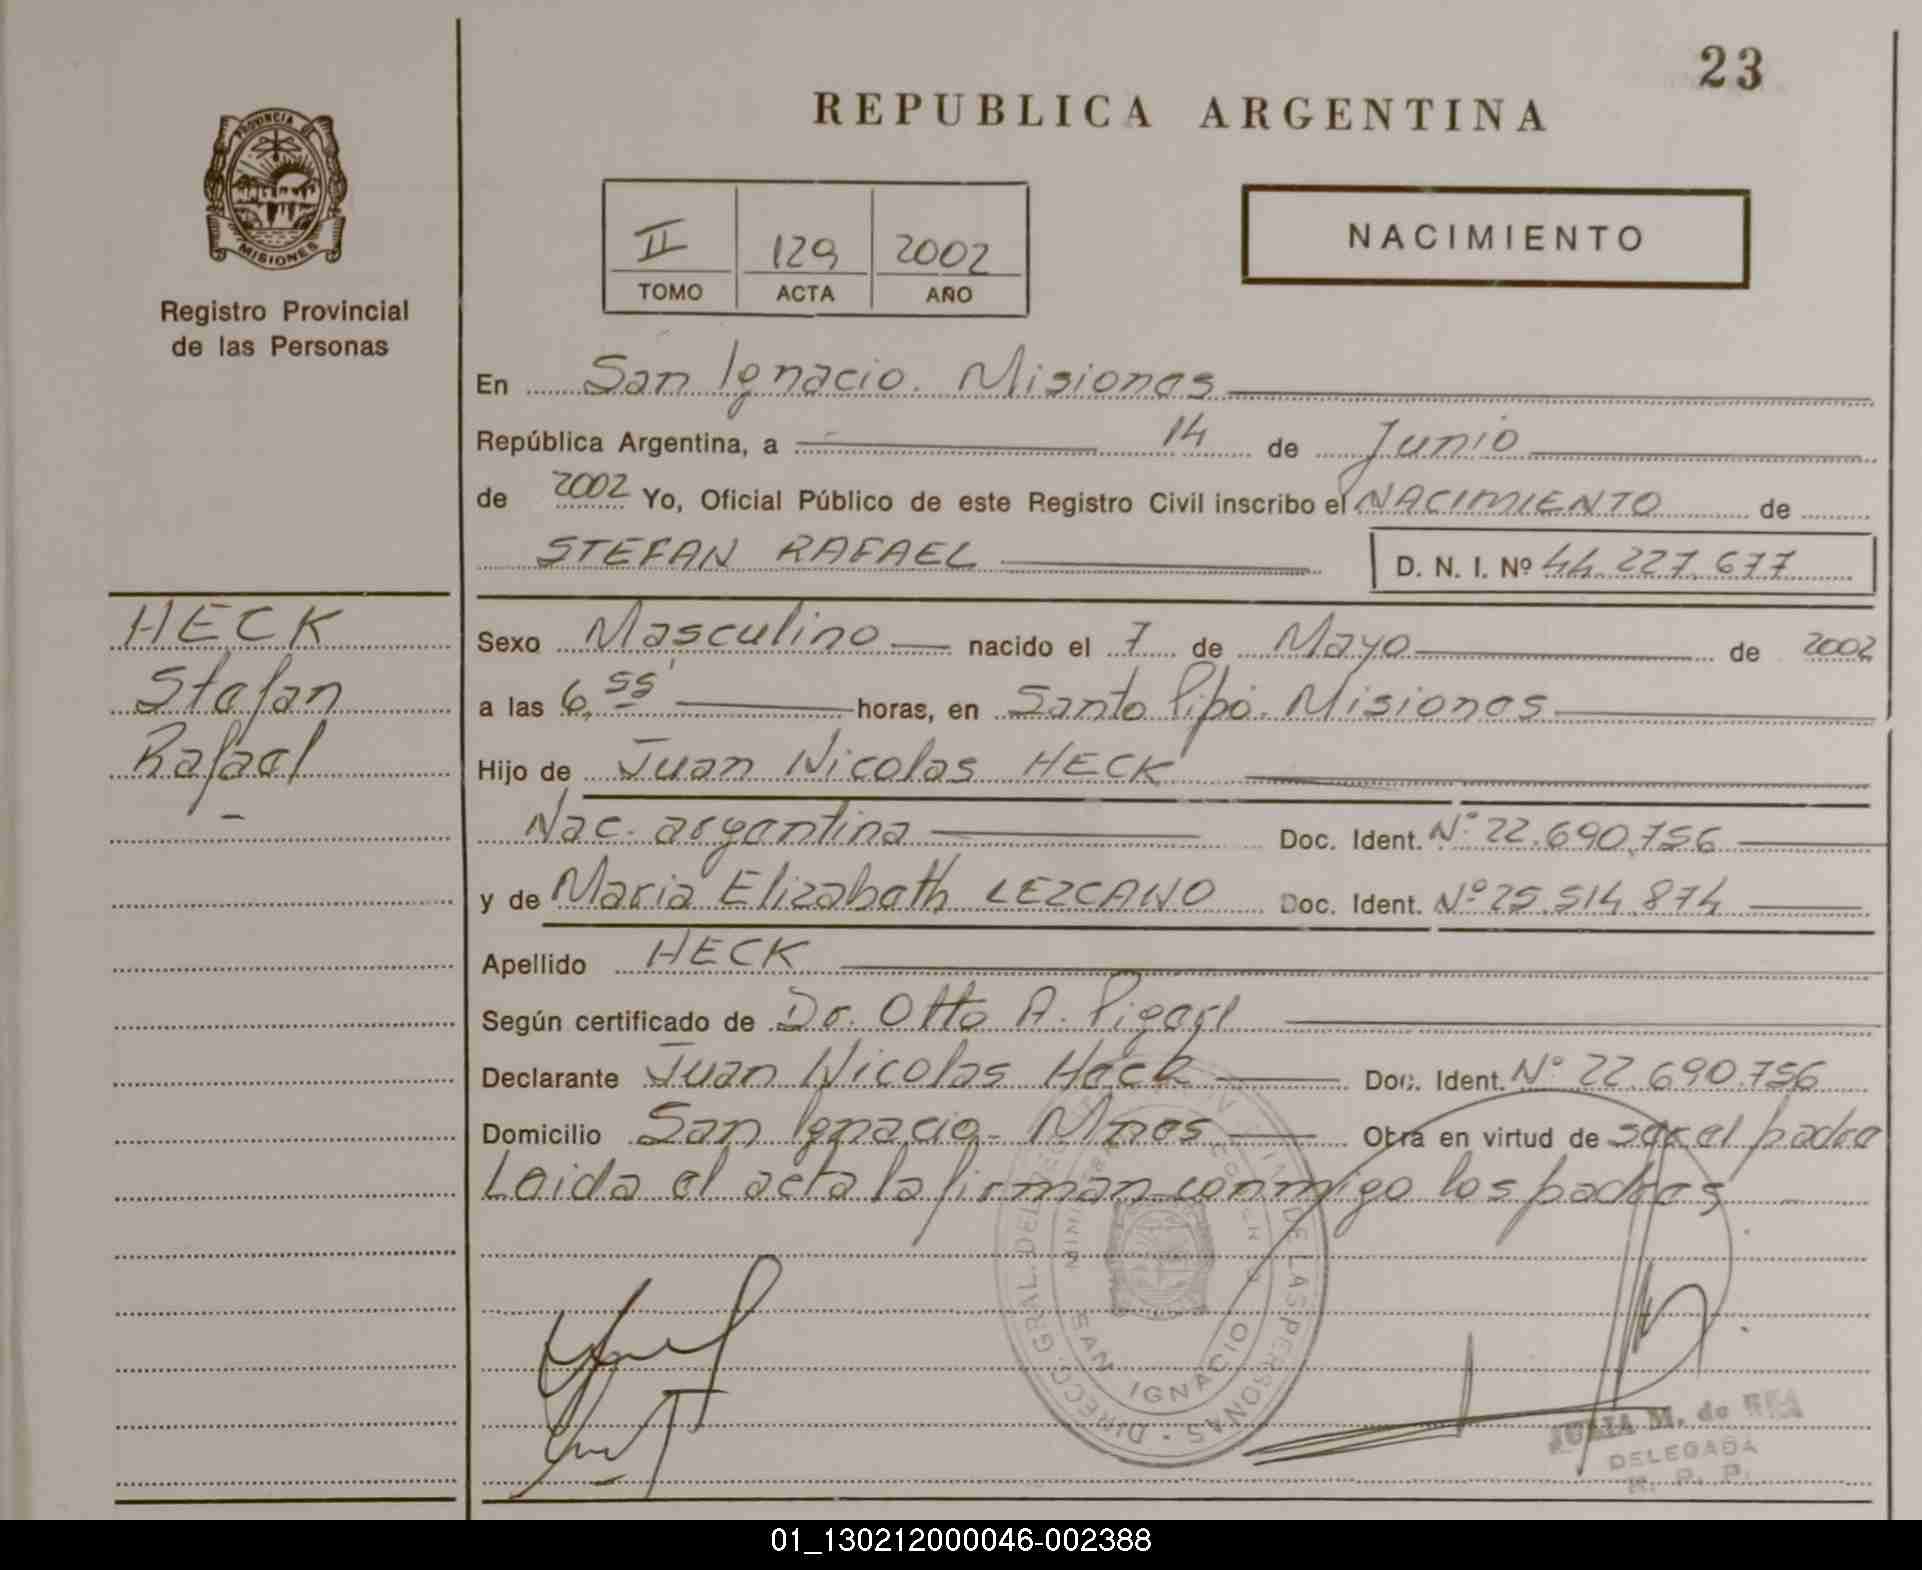 23
REPUBLICA ARGENTINA
PROVINCIA DE
MISIONES
Registro Provincial
de las Personas
II 129 2002
TOMO ACTA AÑO
NACIMIENTO
En San Ignacio. Misiones
República Argentina, a 14 de Junio
de 2002 Yo, Oficial Público de este Registro Civil inscribo el NACIMIENTO de
STEFAN RAFAEL D. N. I. Nº 44.227.677
HECK
Stefan
Rafael
Sexo Masculino nacido el 7 de Mayo de 2002
a las 6,55' horas, en Santo Pipó. Misiones
Hijo de Juan Nicolas HECK
Nac. argentina Doc. Ident. Nº 22.690.756
y de Maria Elizabeth LEZCANO Doc. Ident. Nº 25.514.874
Apellido HECK
Según certificado de Dr. Otto A.
Declarante Juan Nicolas Heck Doc. Ident. Nº 22.690.756
Domicilio San Ignacio- Mnes Obra en virtud de ser el padre
Leida el acta la firman conmigo los padres
DIRECC. GRAL. DEL DE LAS PERSONAS
SAN IGNACIO
M. de
DELEGADA
R. P. P.
01_130212000046-002388